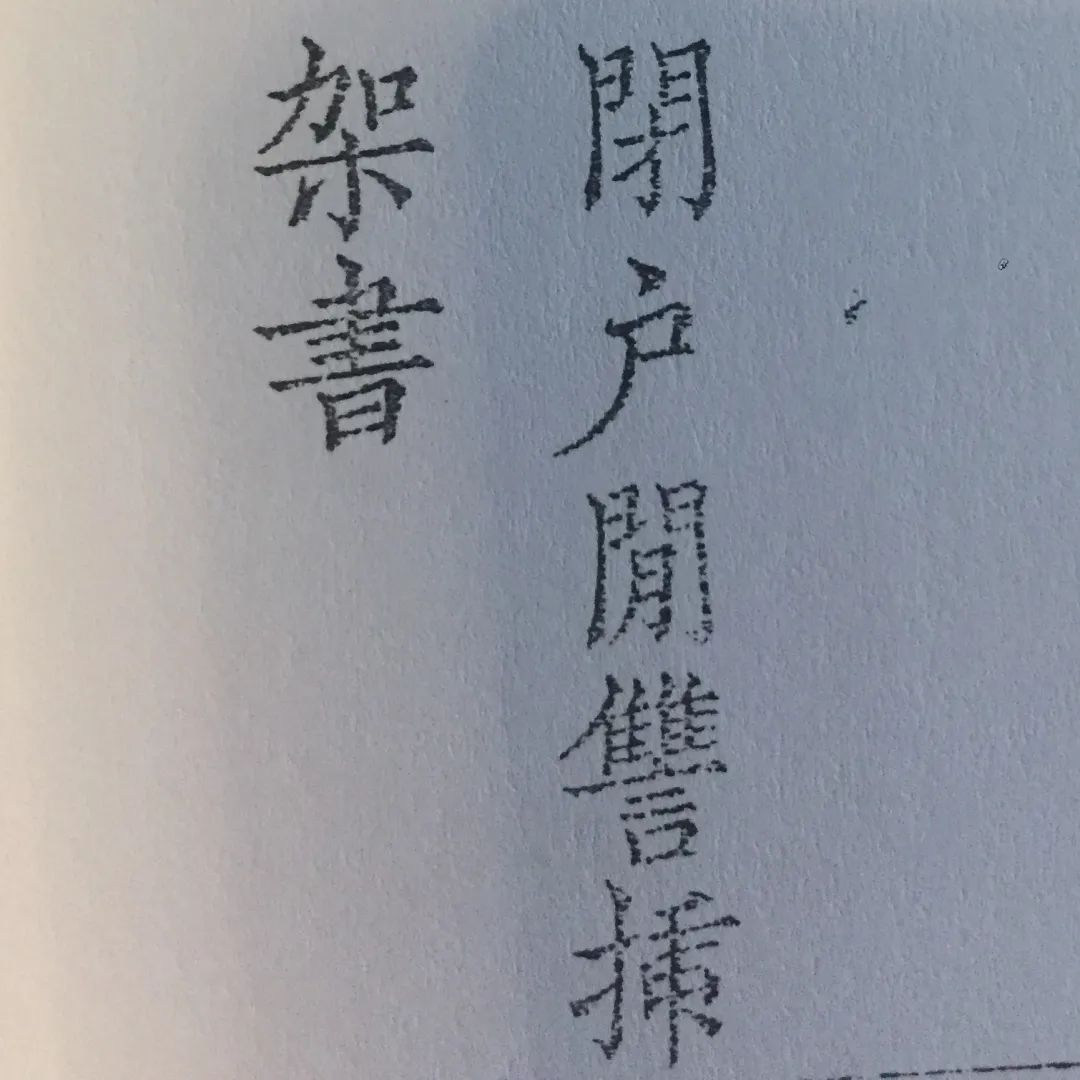 閉户閒讐插
架書